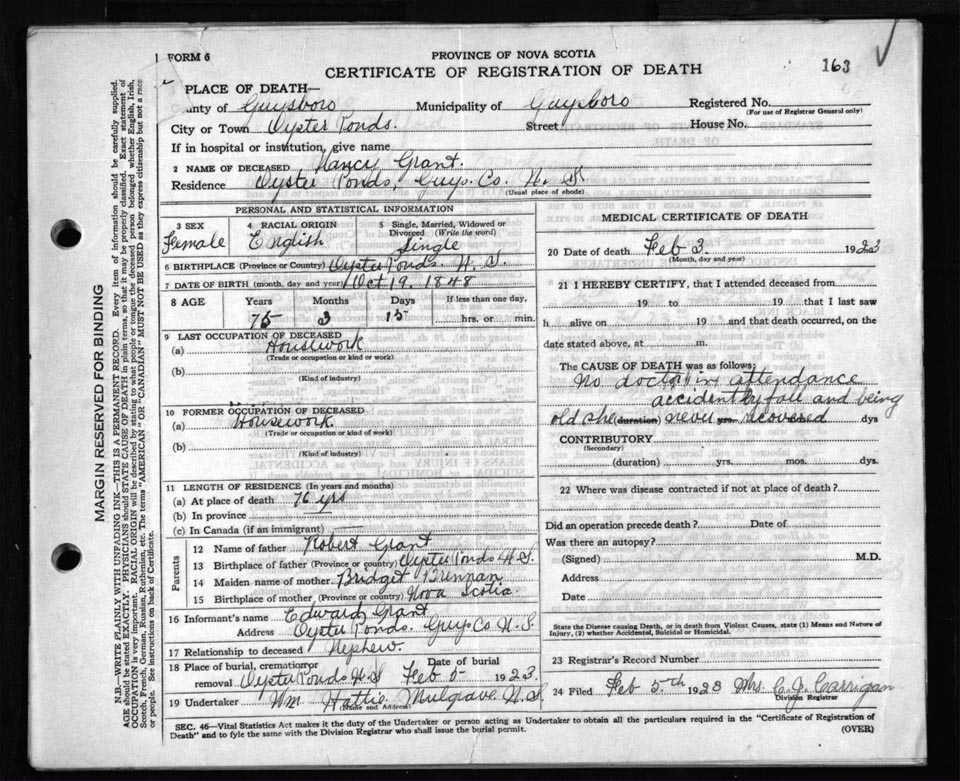 163
FORM 6
PROVINCE OF NOVA SCOTIA
CERTIFICATE OF REGISTRATION OF DEATH
PLACE OF DEATH—
unty of Guysboro Municipality of Guysboro Registered No.
(For use of Registrar General only)
City or Town Oyster Ponds. Street House No.
If in hospital or institution, give name
2 NAME OF DECEASED Nancy Grant.
Residence Oyster Ponds, Guys. Co. N. S
(Usual place of abode)
PERSONAL AND STATISTICAL INFORMATION
3 SEX Female
4 RACIAL ORIGIN English
5 Single, Married, Widowed or Divorced (Write the word) Single
6 BIRTHPLACE (Province or Country) Oyster Ponds. N. S.
7 DATE OF BIRTH (month, day and year) Oct 19. 1848
8 AGE Years Months Days If less than one day.
75 3 15 hrs. or min.
9 LAST OCCUPATION OF DECEASED
(a) Housework
(Trade or occupation or kind or work)
(b)
(Kind of industry)
10 FORMER OCCUPATION OF DECEASED
(a) Housework.
(Trade or occupation or kind of work)
(b)
(Kind of industry)
11 LENGTH OF RESIDENCE (In years and months)
(a) At place of death 76 yrs
(b) In province
(c) In Canada (if an immigrant)
Parents
12 Name of father Robert Grant
13 Birthplace of father (Province or country) Oyster Ponds N.S.
14 Maiden name of mother Bridget Brennan
15 Birthplace of mother (Province or country) Nova Scotia
16 Informant's name Edward Grant
Address Oyster Ponds. Guys Co N. S
17 Relationship to deceased Nephew.
18 Place of burial, cremation or removal Oyster Ponds N. S Date of burial Feb 5 1923.
19 Undertaker Wm Hattie Mulgrave N. S
(Name and Address)
MEDICAL CERTIFICATE OF DEATH
20 Date of death Feb 3. 1923
(Month, day and year)
21 I HEREBY CERTIFY, that I attended deceased from
19 to 19 that I last saw
h alive on 19 and that death occurred, on the
date stated above, at m.
The CAUSE OF DEATH was as follows:
No doctor in attendance
accidently fall and being
old she (duration) never yrs. recovered dys
CONTRIBUTORY
(Secondary)
(duration) yrs. mos. dys.
22 Where was disease contracted if not at place of death?
Did an operation precede death? Date of
Was there an autopsy?
(Signed) M.D.
Address
Date
State the Disease causing Death, or in death from Violent Causes, state (1) Means and Nature of
Injury, (2) whether Accidental, Suicidal or Homicidal.
23 Registrar's Record Number
24 Filed Feb 5th 1923 Mrs. C. J. Carrigan
Division Registrar
SEC. 46—Vital Statistics Act makes it the duty of the Undertaker or person acting as Undertaker to obtain all the particulars required in the "Certificate of Registration of
Death" and to fyle the same with the Division Registrar who shall issue the burial permit. (OVER)
MARGIN RESERVED FOR BINDING
N.B.—WRITE PLAINLY WITH UNFADING INK—THIS IS A PERMANENT RECORD. Every item of information should be carefully supplied.
AGE should be stated EXACTLY. PHYSICIANS should STATE CAUSE OF DEATH in plain terms, so that it may be properly classified. Exact statement of
OCCUPATION is very important. RACIAL ORIGIN will be described by stating to what people or tongue the deceased person belonged whether English, Irish,
Scotch, French, German, Russian, Ruthenian, etc. The terms "AMERICAN" OR "CANADIAN" MUST NOT BE USED as they express citizenship but not a race
or people. See instructions on back of Certificate.